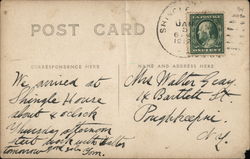 POST CARD
SHINGLE
JAN
CORRESPONDENCE HERE
NAME AND ADDRESS HERE
We arrived at
Shingle House
about 4 o'clock
Thursday afternoon
work with
tomorrow Tom.
Mrs Walter Gray
18 Bartlett St.
Poughkeepsie
N.Y.